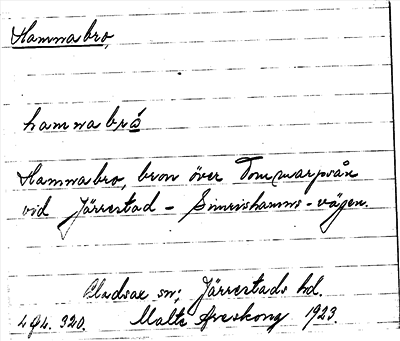 Hamnabro,
hamnabrå
Hamnabro, bron över Tommarpsån
vid Järrestad - Simrishamns-vägen.
Gladsax sn; Järrestads hd.
494. 320. Malte Areskoug 1923.